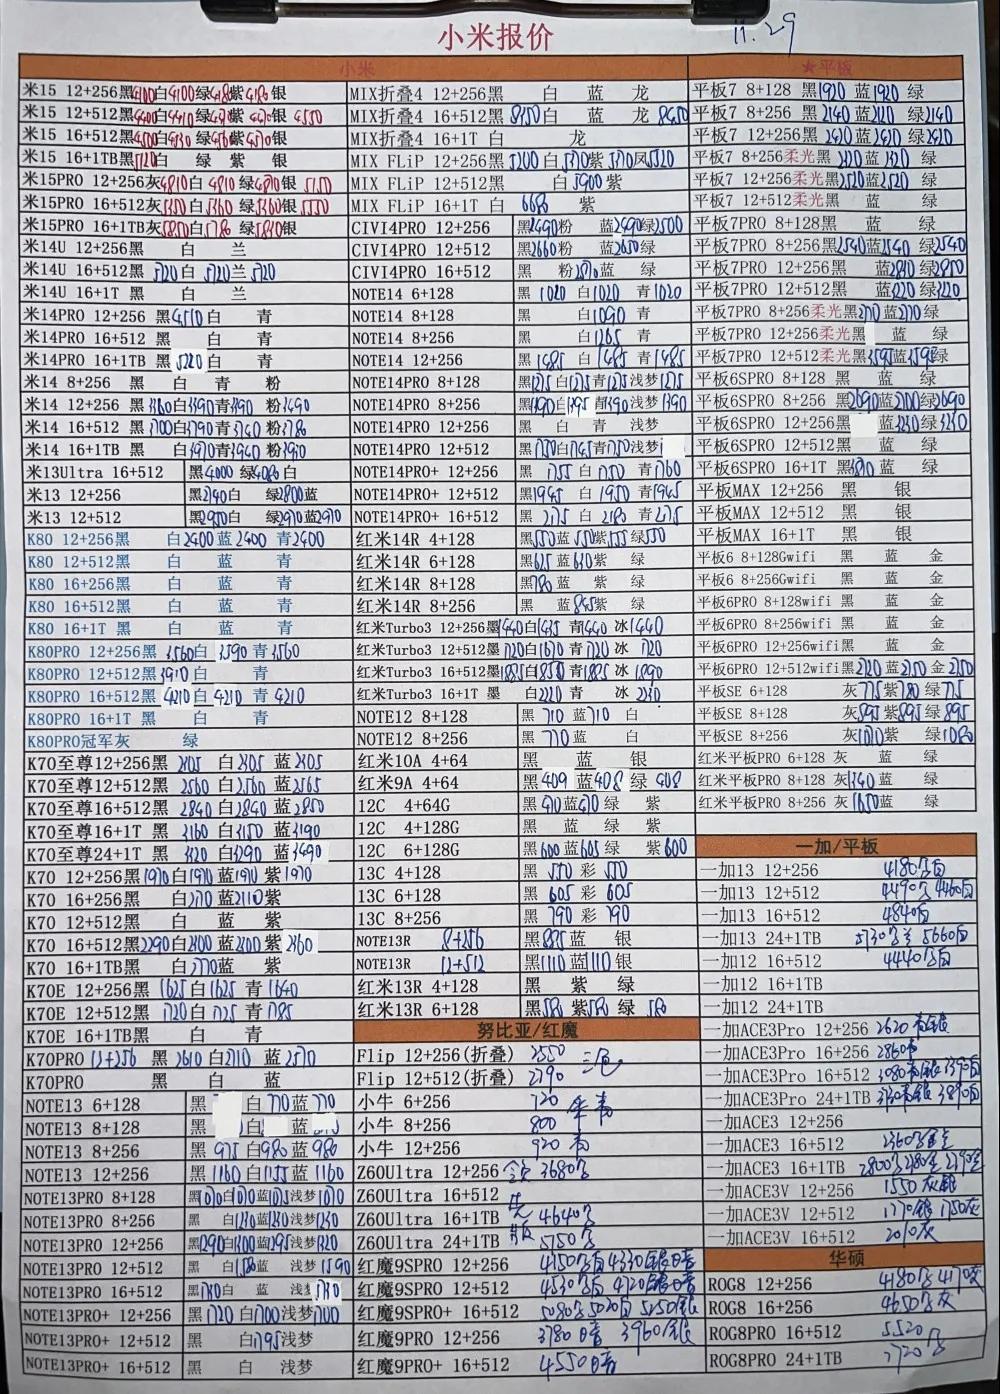 小米报价
11.29
小米
米15 12+256黑4100白4100绿4180紫4180银
米15 12+512黑4400白4410绿紫银 4550
米15 16+512黑4500白绿紫银
米15 16+1TB黑白 绿 紫 银
米15PRO 12+256灰4810白 4810 绿4810银 5150
米15PRO 16+512灰白绿5360银
米15PRO 16+1TB灰5850白绿银
米14U 12+256黑 白 兰
米14U 16+512黑 5720白 5720兰 5720
米14U 16+1T 黑 白 兰
米14PRO 12+256 黑4510白 青
米14PRO 16+512 黑 白 青
米14PRO 16+1TB黑 5220白 青
米14 8+256 黑 白 青 粉
米14 12+256 黑白3390青3390 粉3490
米14 16+512 黑3700白3790青3740 粉3780
米14 16+1TB 黑白3970青3940 粉
米13Ultra 16+512 黑4000 绿4080白
米13 12+256 黑2740白 绿2800蓝
米13 12+512 黑2950白 绿2970蓝2970
K80 12+256黑 白2400蓝 2400 青2400
K80 12+512黑 白 蓝 青
K80 16+256黑 白 蓝 青
K80 16+512黑 白 蓝 青
K80 16+1T 黑 白 蓝 青
K80PRO 12+256黑 3560白 3590 青3560
K80PRO 12+512黑3910白 青
K80PRO 16+512黑 4210白 4210 青 4210
K80PRO 16+1T 黑 白 青
K80PRO冠军灰 绿
K70至尊12+256黑 2305 白2305 蓝2305
K70至尊12+512黑 2560 白2560 蓝2565
K70至尊16+512黑 2840 白2840 蓝2850
K70至尊16+1T 黑 3160 白3150 蓝3190
K70至尊24+1T 黑 3320 白3290 蓝3490
K70 12+256黑1970白1970蓝1970 紫1970
K70 16+256黑 白蓝2110紫
K70 12+512黑 白 蓝 紫
K70 16+512黑2290白2300 蓝2300紫2360
K70 16+1TB黑 白蓝 紫
K70E 12+256黑 1625白1625 青1640
K70E 12+512黑 1720白1725 青1785
K70E 16+1TB黑 白 青
K70PRO 12+256 黑 2610 白2710 蓝
K70PRO 黑 白 蓝
NOTE13 6+128 黑 白 770蓝 770
NOTE13 8+128 黑 白 蓝
NOTE13 8+256 黑 975 白980 蓝 980
NOTE13 12+256 黑1160 白1155 蓝 1160
NOTE13PRO 8+128 黑白蓝浅梦
NOTE13PRO 8+256 黑 白1230蓝1230浅梦1230
NOTE13PRO 12+256 黑1290白1300蓝1295浅梦1320
NOTE13PRO 12+512 黑 白蓝 浅梦1590
NOTE13PRO 16+512 黑白 蓝 浅梦
NOTE13PRO+ 12+256 黑1720 白1700浅梦1700
NOTE13PRO+ 12+512 黑 白1795浅梦
NOTE13PRO+ 16+512 黑 白 浅梦
MIX折叠4 12+256黑 白 蓝 龙
MIX折叠4 16+512黑 8150白 蓝 龙 8450
MIX折叠4 16+1T 白 龙
MIX FLiP 12+256黑 5200 白紫凤
MIX FLiP 12+512黑 白5900紫
MIX FLiP 16+1T 白 6680 紫
CIVI4PRO 12+256 黑2490粉 蓝2490绿2500
CIVI4PRO 12+512 黑2660粉 蓝2650绿
CIVI4PRO 16+512 黑 粉蓝 绿
NOTE14 6+128 黑 1020 白1020 青1020
NOTE14 8+128 黑 白1090 青
NOTE14 8+256 黑 白1265 青
NOTE14 12+256 黑1485 白1485 青1485
NOTE14PRO 8+128 黑1275白1275青1275浅梦1275
NOTE14PRO 8+256 黑1390白1395青1390浅梦1390
NOTE14PRO 12+256 黑 白 青 浅梦
NOTE14PRO 12+512 黑1750白1745青1750浅梦
NOTE14PRO+ 12+256 黑 1755 白 1750 青1760
NOTE14PRO+ 12+512 黑1945 白 1950 青1945
NOTE14PRO+ 16+512 黑 2175 白 2180 青2175
红米14R 4+128 黑550蓝 550紫绿550
红米14R 6+128 黑625 蓝 630紫 绿
红米14R 8+128 黑780 蓝 紫 绿
红米14R 8+256 黑 蓝 845紫 绿
红米Turbo3 12+256墨1440白1435 青1440 冰1440
红米Turbo3 12+512墨1720白1670 青1720 冰 1720
红米Turbo3 16+512墨1885白1850 青1885 冰 1890
红米Turbo3 16+1T 墨 白2220 青 冰 2230
NOTE12 8+128 黑 710 蓝710 白
NOTE12 8+256 黑 770蓝 白
红米10A 4+64 黑 蓝 银
红米9A 4+64 黑409 蓝408 绿 408
12C 4+64G 黑 410蓝410 绿 紫
12C 4+128G 黑 蓝 绿 紫
12C 6+128G 黑600 蓝605 绿 紫600
13C 4+128 黑 550 彩 550
13C 6+128 黑 605 彩 605
13C 8+256 黑 790 彩 790
NOTE13R 8+256 黑895蓝 银
NOTE13R 12+512 黑1110 蓝1110银
红米13R 4+128 黑 紫 绿
红米13R 6+128 黑580 紫580 绿 580
努比亚/红魔
Flip 12+256(折叠) 2550 三色
Flip 12+512(折叠) 2790
小牛 6+256 720
小牛 8+256 800
小牛 12+256 920
Z60Ultra 12+256 3680
Z60Ultra 16+512
Z60Ultra 16+1TB 4640
Z60Ultra 24+1TB 5750
红魔9SPRO 12+256 4150 4330银暗
红魔9SPRO 12+512 4530 4720银暗
红魔9SPRO+ 16+512 5080 5020 5250银
红魔9PRO 12+256 3780暗 3960银
红魔9PRO+ 16+512 4550暗
★平板
平板7 8+128 黑 1920 蓝1920 绿
平板7 8+256 黑 2140 蓝2120 绿2140
平板7 12+256 黑 2410 蓝2410 绿2420
平板7 8+256柔光黑 2320蓝2320 绿
平板7 12+256柔光黑2520蓝2520 绿
平板7 12+512柔光黑 蓝 绿
平板7PRO 8+128黑 蓝 绿
平板7PRO 8+256黑2540蓝2540 绿2540
平板7PRO 12+256黑 蓝2810 绿2850
平板7PRO 12+512黑 蓝3220 绿3220
平板7PRO 8+256柔光黑2710 蓝2710 绿
平板7PRO 12+256柔光黑 蓝 绿
平板7PRO 12+512柔光黑3595蓝3595绿
平板6SPRO 8+128 黑 蓝 绿
平板6SPRO 8+256 黑2690蓝2700绿2690
平板6SPRO 12+256黑 蓝3230 绿3230
平板6SPRO 12+512黑 蓝 绿
平板6SPRO 16+1T 黑 蓝 绿
平板MAX 12+256 黑 银
平板MAX 12+512 黑 银
平板MAX 16+1T 黑 银
平板6 8+128Gwifi 黑 蓝 金
平板6 8+256Gwifi 黑 蓝 金
平板6PRO 8+128wifi 黑 蓝 金
平板6PRO 8+256wifi 黑 蓝 金
平板6PRO 12+256wifi黑 蓝 金
平板6PRO 12+512wifi黑2720 蓝2750 金 2750
平板SE 6+128 灰 775紫780 绿775
平板SE 8+128 灰895紫895 绿 895
平板SE 8+256 灰1070紫 绿1080
红米平板PRO 6+128 灰 蓝 绿
红米平板PRO 8+128 灰1340 蓝 绿
红米平板PRO 8+256 灰1650蓝 绿
一加/平板
一加13 12+256 4180
一加13 12+512 4490 4460
一加13 16+512 4840
一加13 24+1TB 5730 5660
一加12 16+512 4440
一加12 16+1TB
一加12 24+1TB
一加ACE3Pro 12+256 2620
一加ACE3Pro 16+256 2860
一加ACE3Pro 16+512 3080
一加ACE3Pro 24+1TB
一加ACE3 12+256
一加ACE3 16+512 2360
一加ACE3 16+1TB 2800
一加ACE3V 12+256 1550灰银
一加ACE3V 12+512 1770银 1750灰
一加ACE3V 16+512 2010灰
华硕
ROG8 12+256 4180 4170灰
ROG8 16+256 4650灰
ROG8PRO 16+512 5520
ROG8PRO 24+1TB 7720